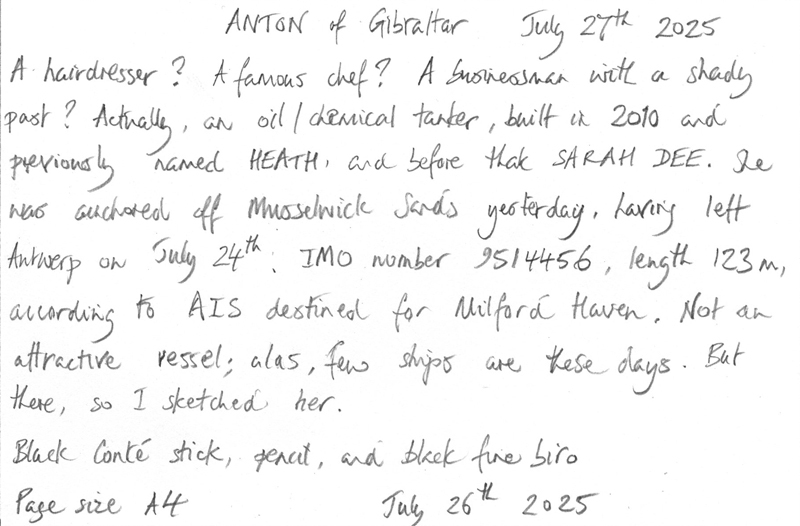 ANTON of Gibraltar July 27th 2025
A hairdresser? A famous chef? A businessman with a shady
past? Actually, an oil/chemical tanker, built in 2010 and
previously named HEATH, and before that SARAH DEE. She
was anchored off Musselwick Sands yesterday, having left
Antwerp on July 24th. IMO number 9514456, length 123m,
according to AIS destined for Milford Haven. Not an
attractive vessel; alas, few ships are these days. But
there, so I sketched her.
Black Conté stick, pencil, and black fine biro
Page size A4 July 26th 2025